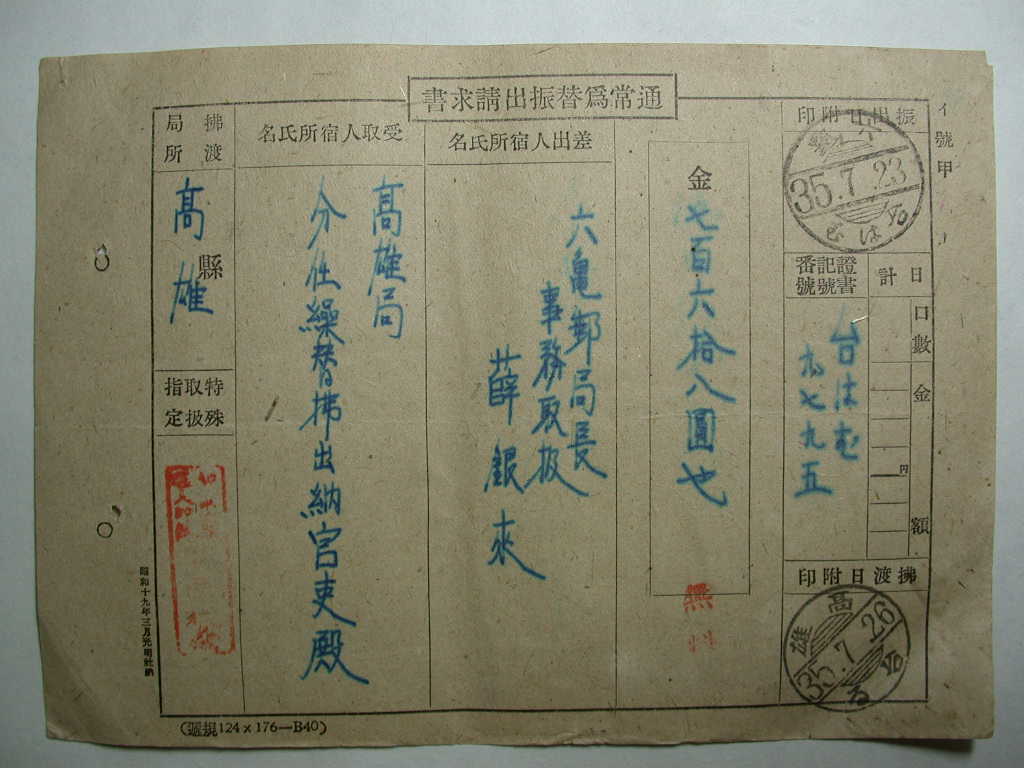 通常爲替振出請求書
イ號甲
振出日附印
35.7.23
證書記號番號
日計
口數
金額
円
台は
七九五
拂渡日附印
高雄
35.7.26
金七百六拾八圓也
無料
差出人宿所氏名
六亀郵局長
事務取扱
薛銀來
受取人宿所氏名
高雄局
分任繰替拂出納官吏殿
拂渡局所
高雄縣
特殊取扱指定
昭和十九年三月光明社納
(遞規124x176—B40)